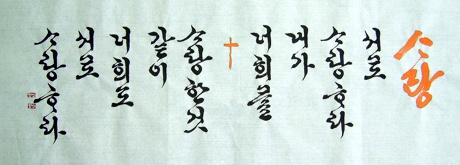 사랑
서로
사랑하라
내가
너희를
사랑한것
같이
너희도
서로
사랑하라